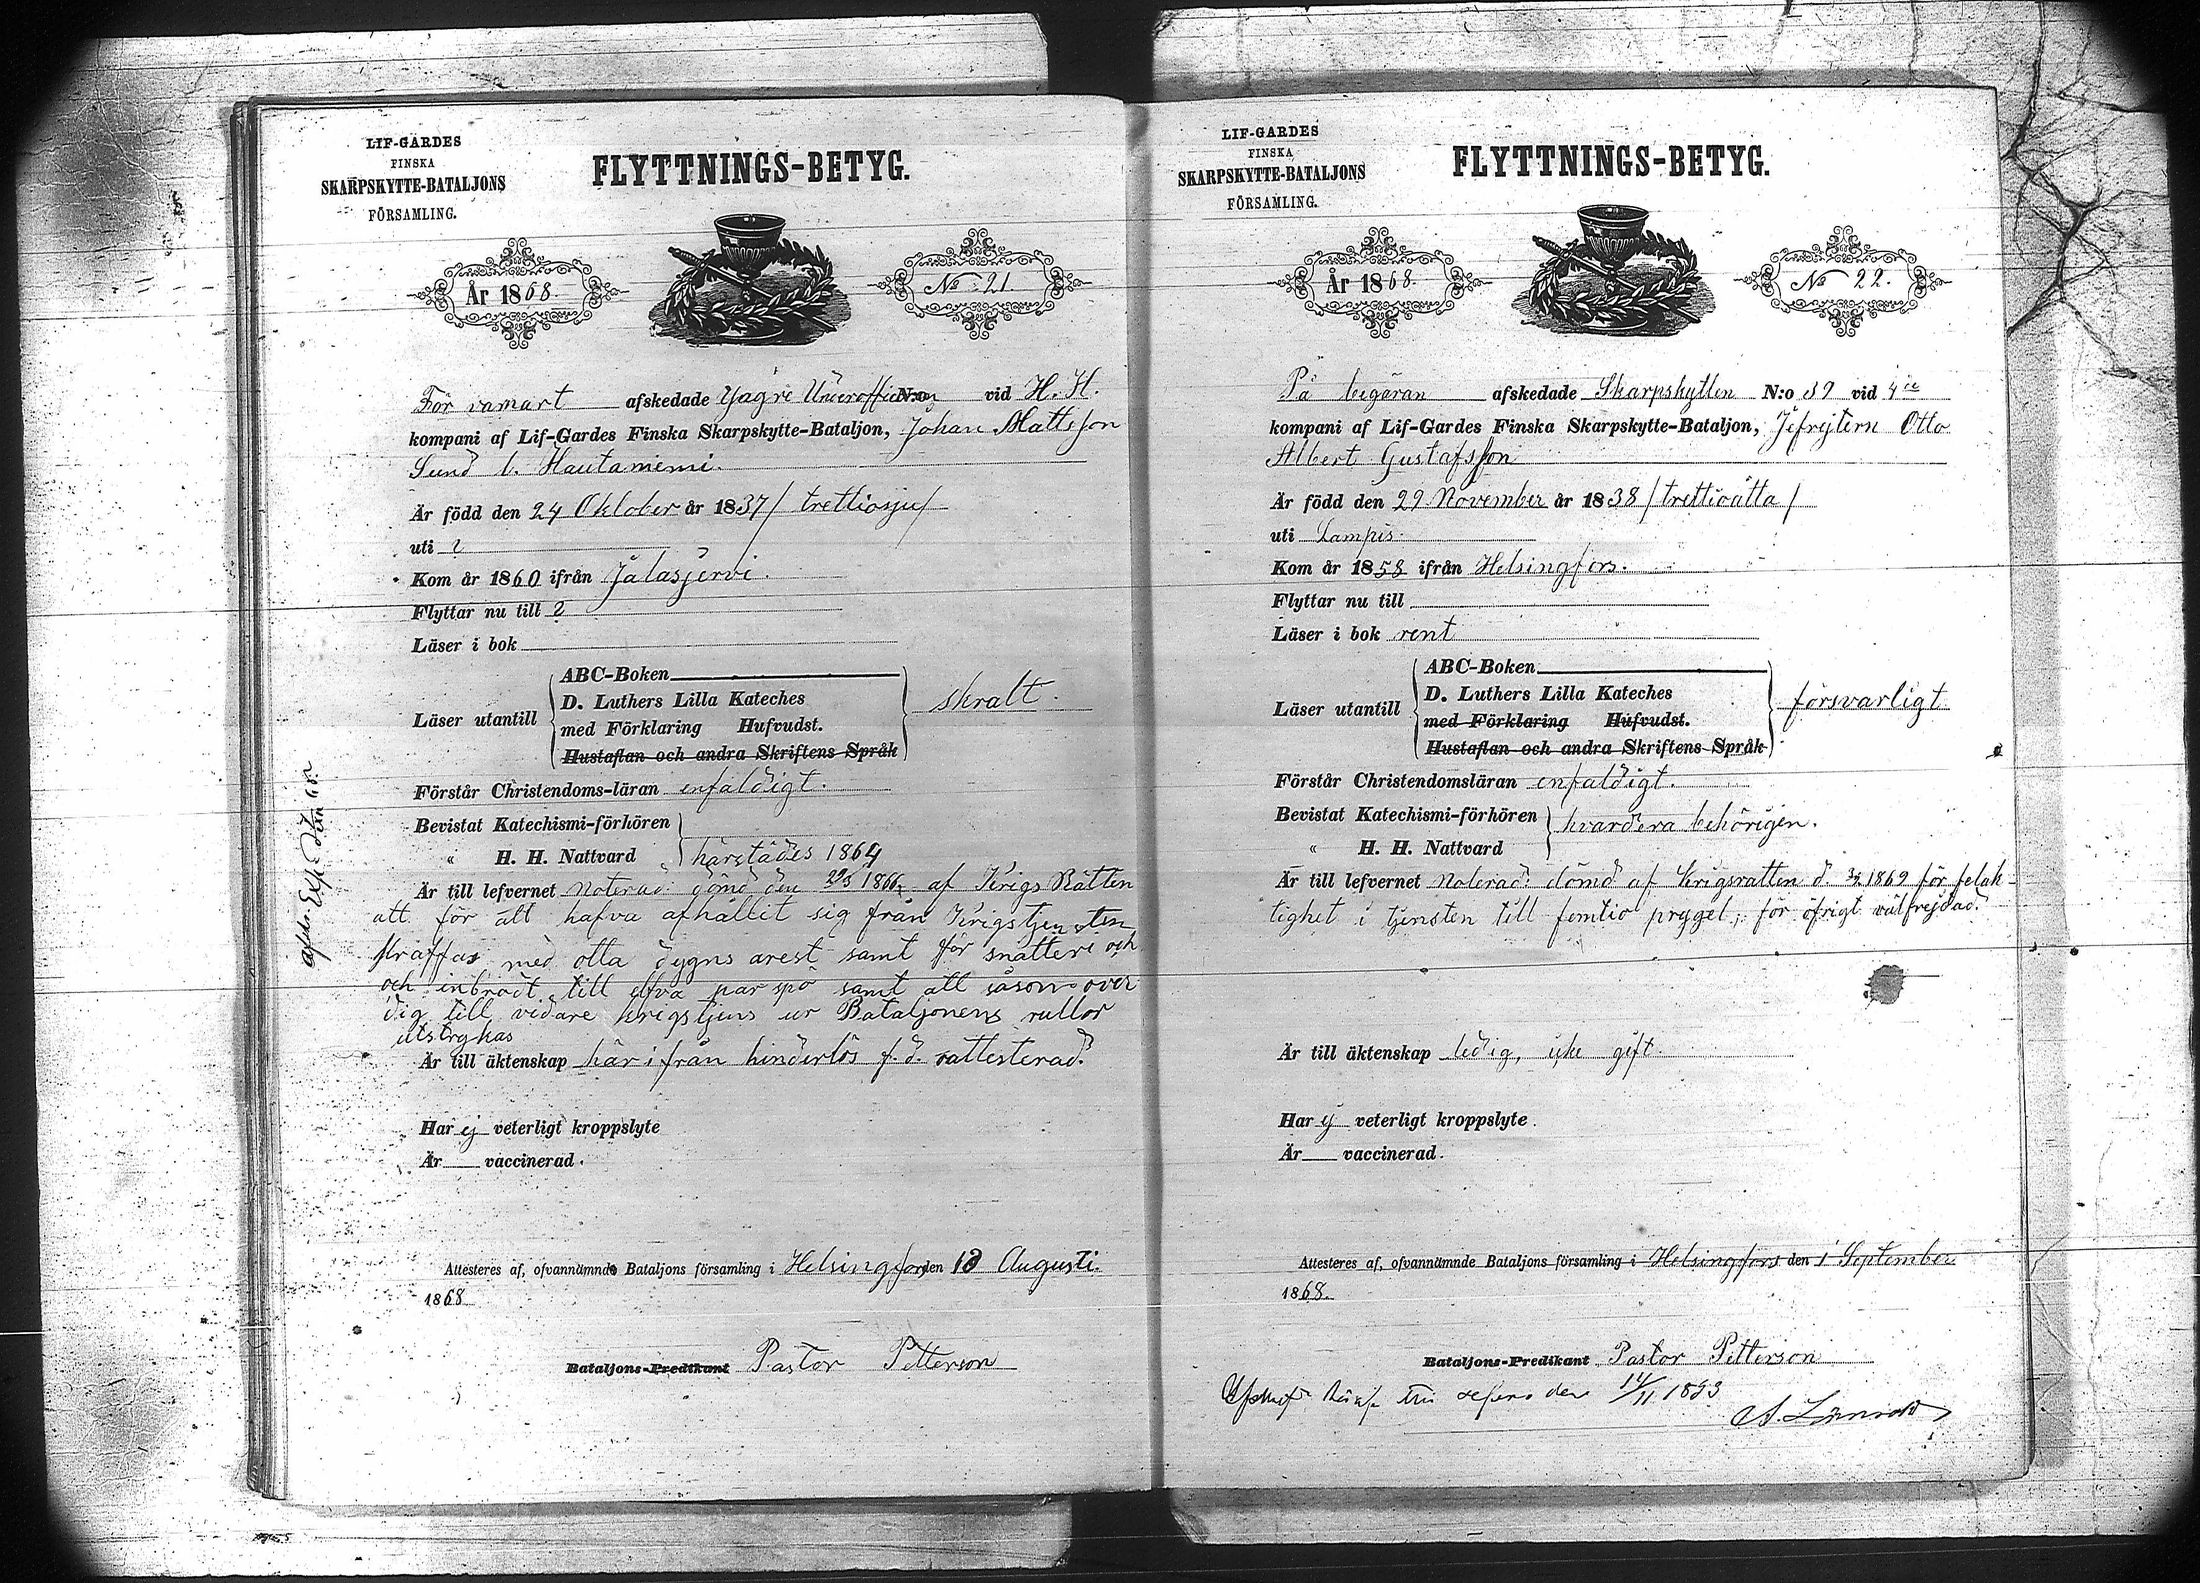 LIF-GARDES
FINSKA
SKARPSKYTTE-BATALJONS
FÖRSAMLING.
FLYTTNINGS-BETYG.
År 1868.
No 21.
För vanart afskedade Yngre Underofficeren N:o vid H. H.
kompani af Lif-Gardes Finska Skarpskytte-Bataljon, Johan Mattsson
Sund l. Hautaniemi.
Är född den 24 Oktober år 1837 / trettiosju /
uti ?
Kom år 1860 ifrån Jalasjervi.
Flyttar nu till ?
Läser i bok
Läser utantill
ABC-Boken
D. Luthers Lilla Kateches
med Förklaring Hufvudst.
Hustaflan och andra Skriftens Språk
skralt.
Förstår Christendoms-läran enfaldigt.
Bevistat Katechismi-förhören
" H. H. Nattvard härstädes 1864
Är till lefvernet noterad: dömd den 1866 af Krigs Rätten
att för att hafva afhållit sig från Krigstjensten
straffas med otta dygns arest samt för snatteri och
och inbrott till elfva par spö samt att såsom ovär
dig till vidare krigstjens ur Bataljonens rullor
utstrykas
Är till äktenskap härifrån hinderlös f. d. attesterad.
Har ej veterligt kroppslyte
Är vaccinerad.
Attesteres af, ofvannämnde Bataljons församling i Helsingfors den 18 Augusti
1868
Bataljons-Predikant Pastor Petterson
LIF-GARDES
FINSKA
SKARPSKYTTE-BATALJONS
FÖRSAMLING.
FLYTTNINGS-BETYG.
År 1868.
No 22.
På begäran afskedade Skarpskytten N:o 39 vid 4de
kompani af Lif-Gardes Finska Skarpskytte-Bataljon, Jefrejtern Otto
Albert Gustafsson
Är född den 29 November år 1838 / trettioåtta /
uti Lampis.
Kom år 1858 ifrån Helsingfors.
Flyttar nu till
Läser i bok rent
Läser utantill
ABC-Boken
D. Luthers Lilla Kateches
med Förklaring Hufvudst.
Hustaflan och andra Skriftens Språk
försvarligt
Förstår Christendomsläran enfaldigt.
Bevistat Katechismi-förhören
" H. H. Nattvard
hvardera behörigen.
Är till lefvernet noterad: dömd af Krigsrätten d. 1869 för felak-
tighet i tjensten till femtio prygel, för öfrigt välfrejdad.
Är till äktenskap ledig, icke gift.
Har ej veterligt kroppslyte.
Är vaccinerad.
Attesteres af, ofvannämnde Bataljons församling i Helsingfors den 1 September
1868.
Bataljons-Predikant Pastor Petterson
den 14/11 1893